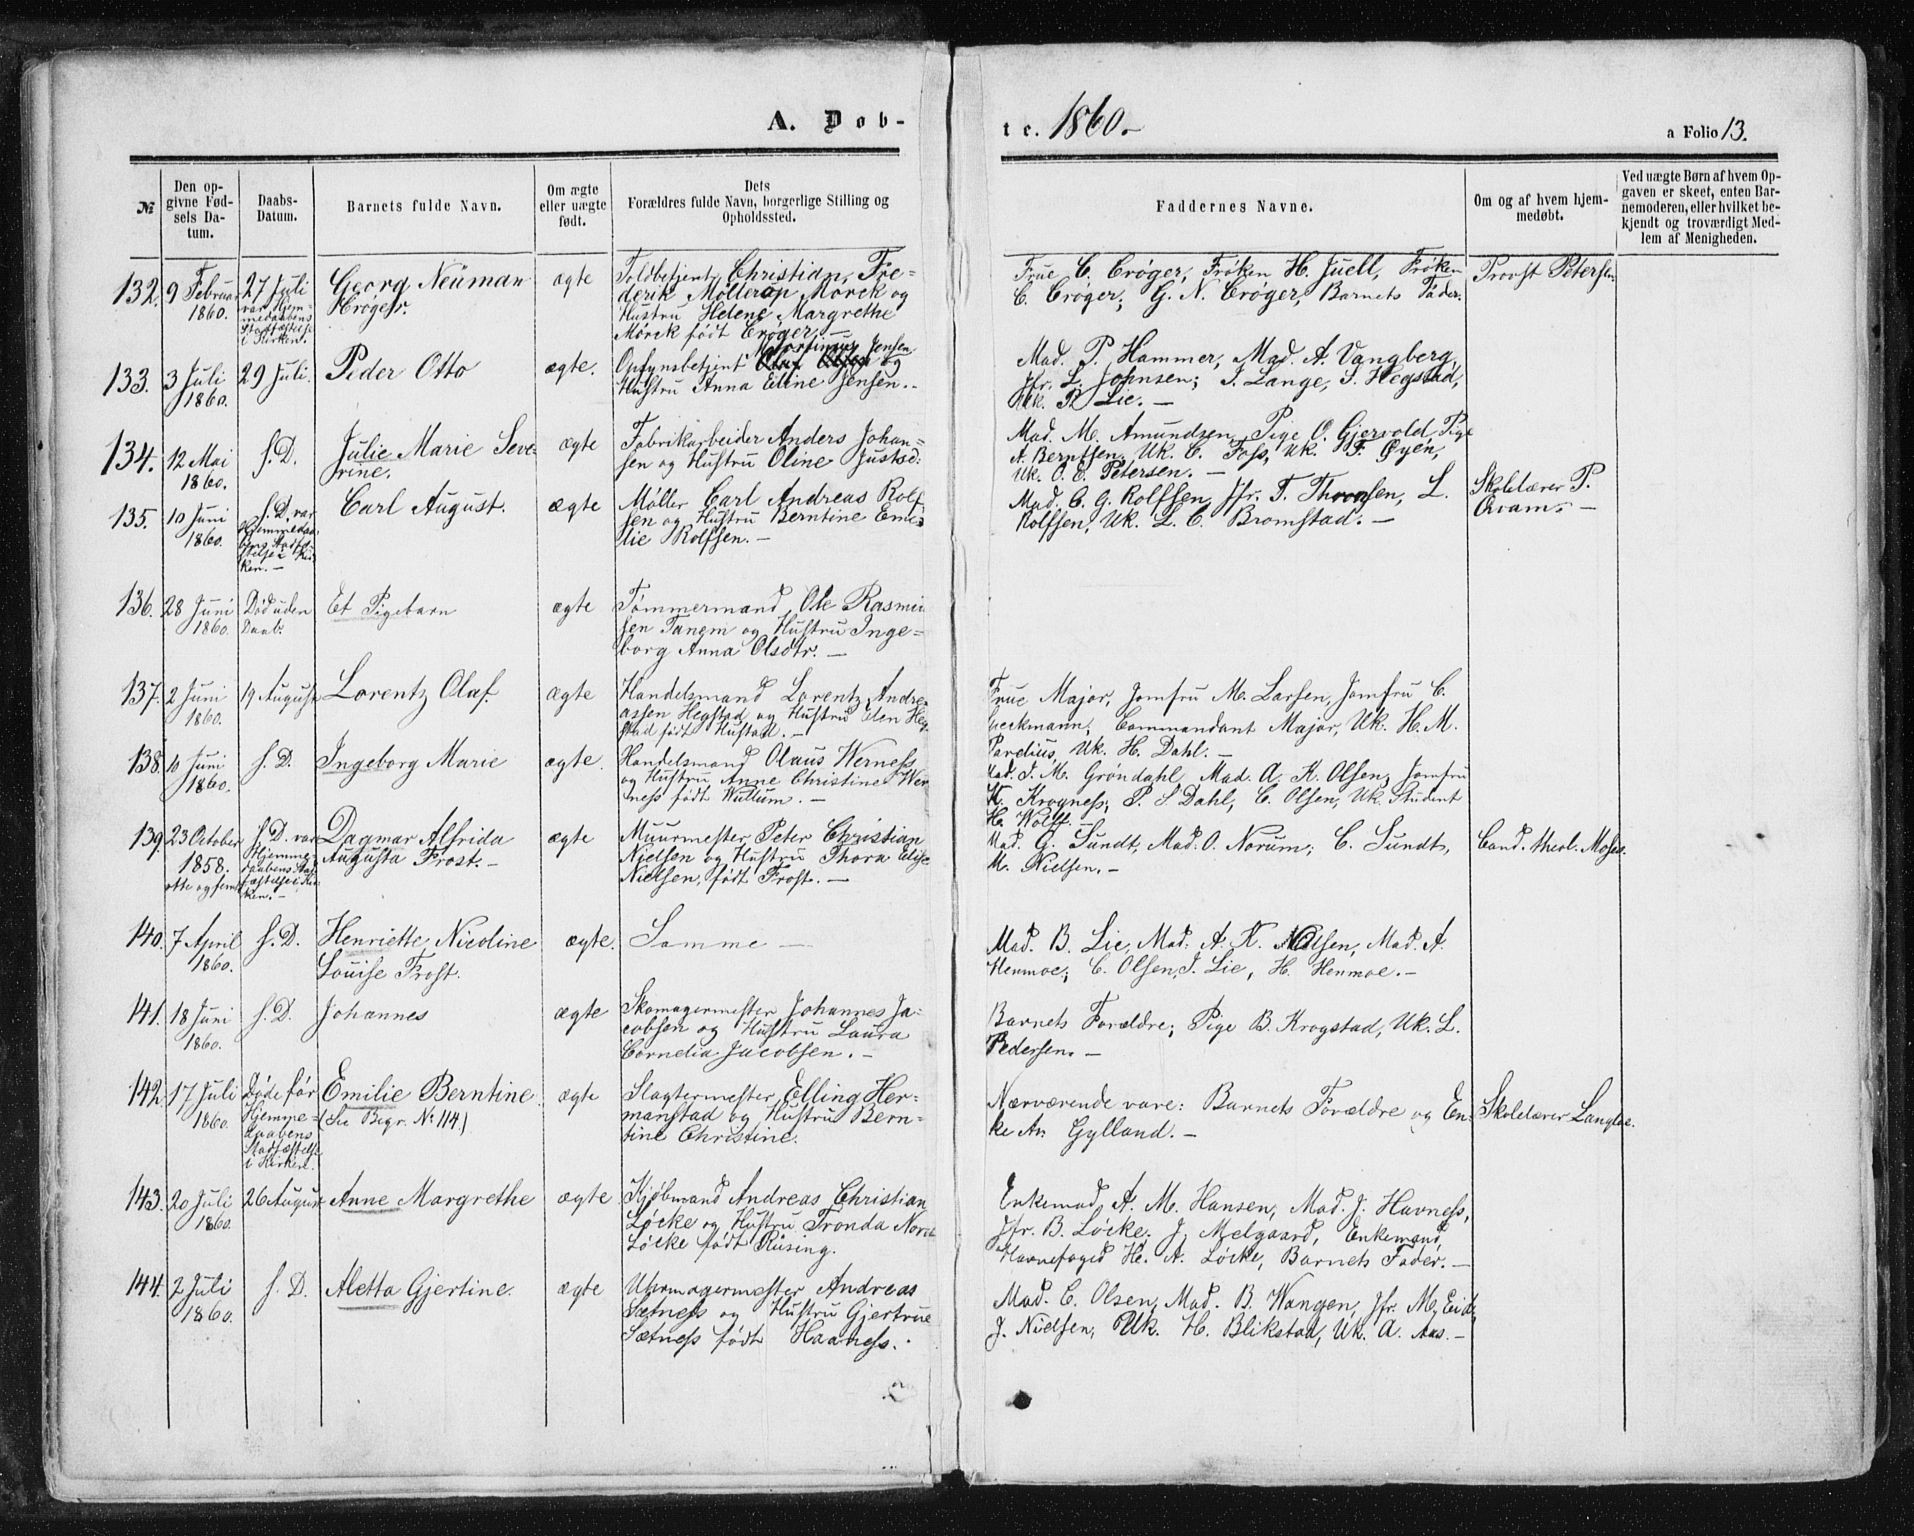 A. Døb-
te. 1860.-
a Folio 13.
№
Den op-
givne Fød-
sels Da-
tum.
Daabs-
Datum.
Barnets fulde Navn.
Om ægte
eller uægte
født.
Dets
Forældres fulde Navn, borgerlige Stilling og
Opholdssted.
Faddernes Navne.
Om og af hvem hjem-
medøbt.
Ved uægte Børn af hvem Op-
gaven er skeet, enten Bar-
nemoderen, eller hvilket be-
kjendt og troværdigt Med-
lem af Menigheden.
132.
9 Februar
1860.
27 Juli
var Hjem-
medaabens
Stadfæstelse
i Kirken.
Georg Neuman
Crøger.
ægte
Toldbetjent Christian Fre-
derik Møllerop Mörck og
Hustru Helene Margrethe
Mörck født Crøger.-
Frue C. Crøger, Frøken H. Juell, Frøken
C. Crøger; G. N. Crøger, Barnets Fader.
Provst Petersen
133.
3 Juli
1860.
29 Juli.
Peder Otto
ægte.
Opsynsbetjent Jensen og
Hustru Anna Elline Jensen.-
Mad. P. Hammer, Mad. A. Vangberg,
Jfr. L. Johnsen; J. Lange, S. Hegstad,
Uk. P. Lie.-
134.
12 Mai
1860.
s. D.
Julie Marie Seve-
rine.
ægte
Fabrikarbeider Anders Johan-
sen og Hustru Oline Justsd:
Mad. M. Amundsen, Pige O. Gjervold, Pige
A. Berntsen, Uk. C. Foss, Uk. F. Øyen,
Uk. O. E. Petersen.-
135.
10 Juni
1860.
s. D. var
Hjemmedaa-
bens Stadfæ-
stelse i Kir-
ken.-
Carl August.
ægte
Møller Carl Andreas Rolf-
sen og Hustru Berntine Emi-
lie Rolfsen.-
Mad. C. G. Rolfsen, Jfr. T. Thorsen, L.
Rolfsen, Uk. L. C. Bromstad.-
Skolelærer P.
Qvam.-
136.
28 Juni
1860.
Død uden
Daab.
Et Pigebarn
ægte
Tømmermand Ole Rasmus-
sen Tangen og Hustru Inge-
borg Anna Olsdtr.-
137.
2 Juni
1860.
19 August
Lorentz Olaf.
ægte
Handelsmand Lorentz Andre-
assen Hegstad og Hustru Elen Heg-
stad født Hustad.-
Frue Major, Jomfru M. Larsen, Jomfru C.
Commandant Major, Uk. H. M.
Pardius, Uk. H. Dahl.-
138.
10 Juni
1860.
s. D.
Ingeborg Marie
ægte.
Handelsmand Olaus Werness
og Hustru Anne Christine Wer-
ness født Wullum.-
Mad. J. M. Grøndahl, Mad. A. K. Olsen, Jomfru
K. Krogness; P. S. Dahl, C. Olsen, Uk. Student
H. Wolff.-
139.
23 October
1858.
otte og femti
s. D. var
Hjemme-
daabens Stad-
fæstelse i Kir-
ken.-
Dagmar Alfrida
Augusta Frost.-
ægte
Muurmester Peter Christian
Nielsen og Hustru Thora Elise
Nielsen, født Frost.-
Mad. G. Sundt, Mad. O. Norum; C. Sundt,
M. Nielsen.-
Cand. theol. Moses.
140.
7 April
1860.
s. D.
Henriette Nicoline
Louise Frost.
ægte.
Samme -
Mad. B. Lie, Mad. A. K. Nilsen, Mad. A.
Henmoe; C. Olsen, J. Lie, H. Henmoe.-
141.
18 Juni
1860.
s. D.
Johannes
ægte
Skomagermester Johannes Ja-
cobsen og Hustru Laura
Cornelia Jacobsen.-
Barnets Forældre; Pige B. Krogstad, Uk. L.
Pedersen.-
142.
17 Juli
1860.
Døde før
Hjemme-
daabens
Stadfæstelse
i Kirken.
Emilie Berntine
(See Begr. No 114.)
ægte
Slagtermester Elling Her-
manstad og Hustru Bern-
tine Christine.
Nærværende vare: Barnets Forældre og En-
ke An. Gylland.-
Skolelærer Langloe.
143.
20 Juli
1860.
26 August
Anne Margrethe
ægte
Kjøbmand Andreas Christian
Löcke og Hustru Tronda
Löcke født Rüsing.
Enkemad. A. M. Hansen, Mad. J. Havness,
Jfr. B. Löcke; J. Melgaard, Enkemand,
Havnefoged H. A. Löcke, Barnets Fader.-
144.
2 Juli
1860.
s. D.
Aletta Gjertine.
ægte
Uhrmagermester Andreas
Sætness og Hustru Gjertrue
Sætness født Haaness.
Mad. C. Olsen, Mad. B. Wangen, Jfr. M. Eid,
J. Nielsen, Uk. H. Blikstad, Uk. A. Aas.-